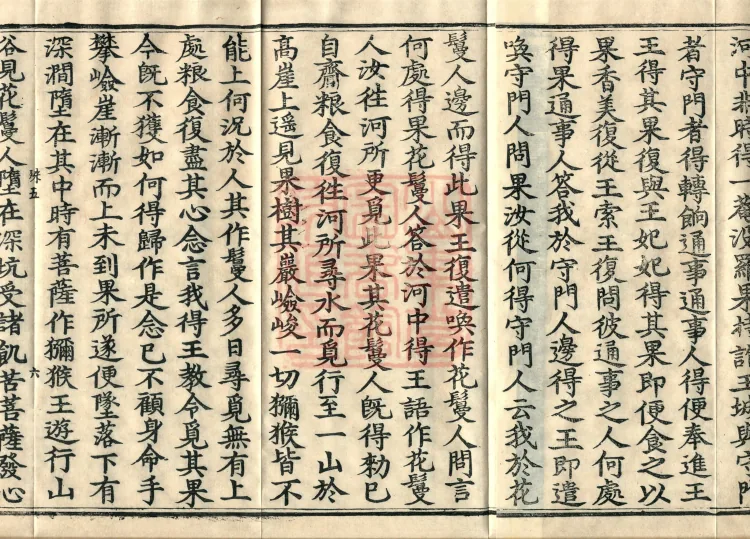 河中得一菴沒羅果持詣王城與守門
者守門者得轉餉通事通事人得便奉進王
王得其果復與王妃妃得其果即便食之以
果香美復從王索王復問彼通事之人何處
得果通事人答我於守門人邊得之王即遣
喚守門人問果汝從何得守門人云我於花
鬘人邊而得此果王復遣喚作花鬘人問言
何處得果花鬘人答於河中得王語作花鬘
人汝往河所更覓此果其花鬘人既得勑已
自齎粮食復往河所尋水而覓行至一山於
高崖上遥見果樹其巖嶮峻一切獼猴皆不
能上何況於人其作鬘人多日尋覓無有上
處粮食復盡其心念言我得王教令覓其果
今既不獲如何得歸作是念已不顧身命手
攀嶮崖漸漸而上未到果所遂便墜落下有
深澗墮在其中時有菩薩作獼猴王遊行山
殊五 六
谷見花鬘人墮在深坑受諸飢苦菩薩發心